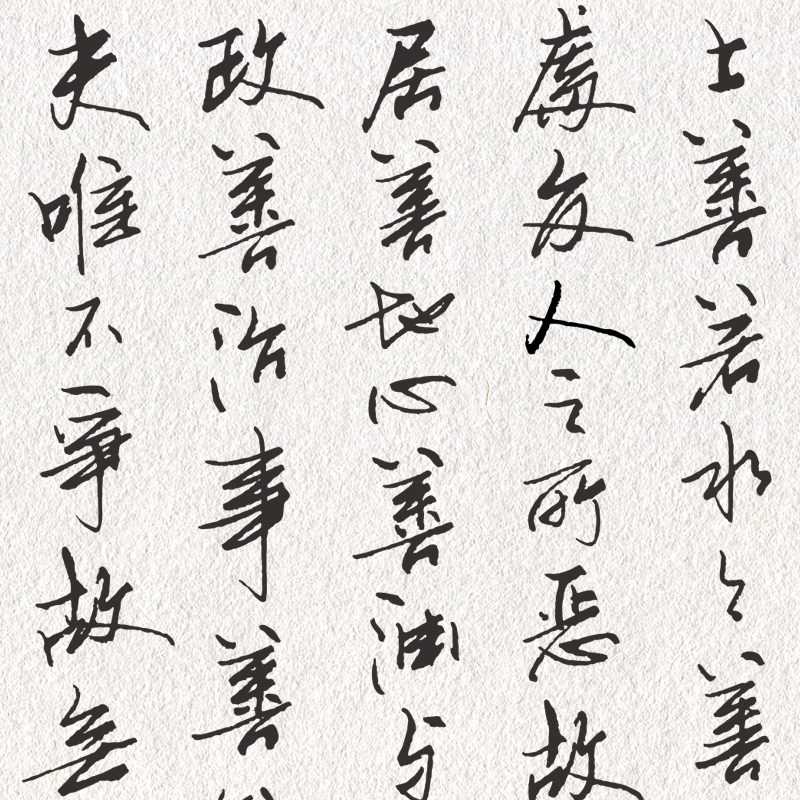 上善若水々善
處众人之所惡故
居善地心善淵与
政善治事善
夫唯不爭故無